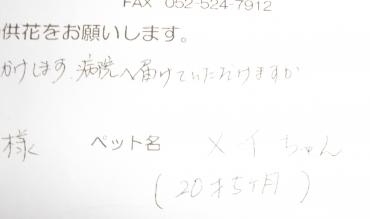 FAX 052-524-7912
供花をお願いします。
かけします、病院へ届けていただけますか
様 ペット名 メイちゃん
(20才5ヶ月)